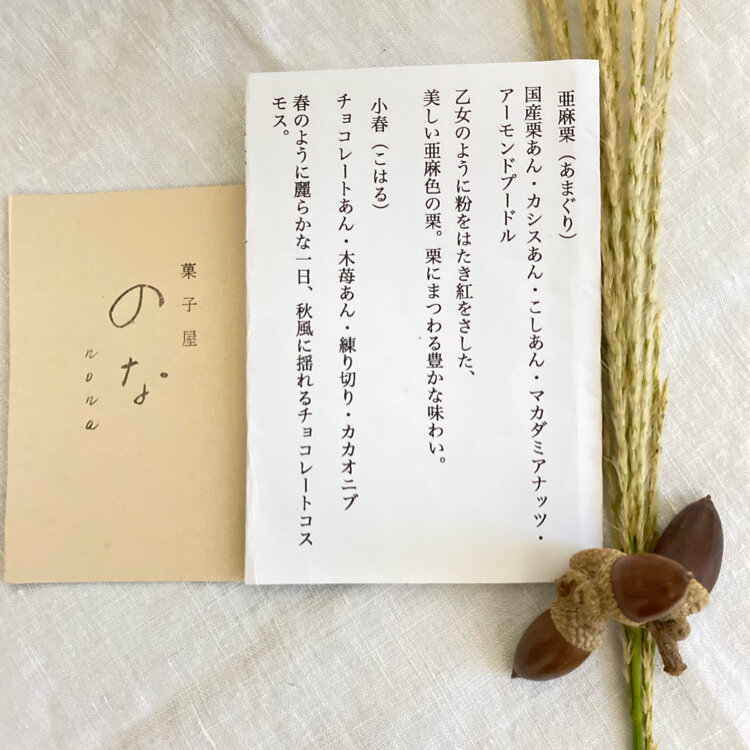 亜麻栗（あまぐり）
国産栗あん・カシスあん・こしあん・マカダミアナッツ・
アーモンドプードル
乙女のように粉をはたき紅をさした、
美しい亜麻色の栗。栗にまつわる豊かな味わい。
小春（こはる）
チョコレートあん・木苺あん・練り切り・カカオニブ
春のように麗らかな一日、秋風に揺れるチョコレートコス
モス。
菓子屋
のな
nona